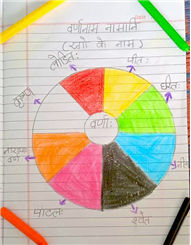 वर्णनाम नामानि
(रंगों के नाम)
लोहितः
पीतः
हरितः
नील
श्वेत
पाटलः
नारङ्ग
वर्ण
कृष्ण
वर्णाः